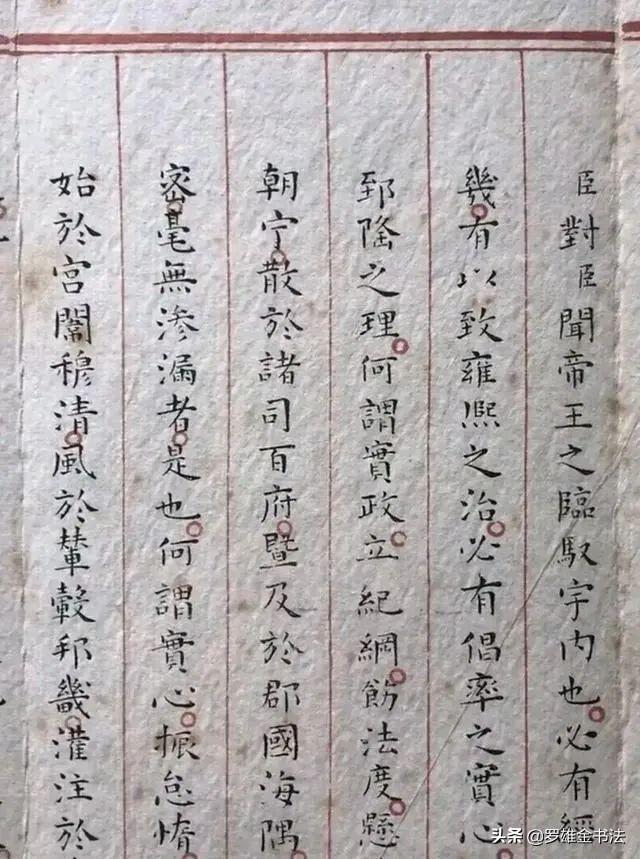 臣對臣聞帝王之臨馭宇内也必有經
幾有以致雍熙之治必有倡率之實心
郅隆之理何謂實政立紀綱飭法度懸
朝宁散於諸司百府暨及於郡國海隅
宻毫無滲漏者是也何謂實心振怠惰
始於宮闈穆清風於輦轂邦畿灌注於
头条 @罗雄金书法